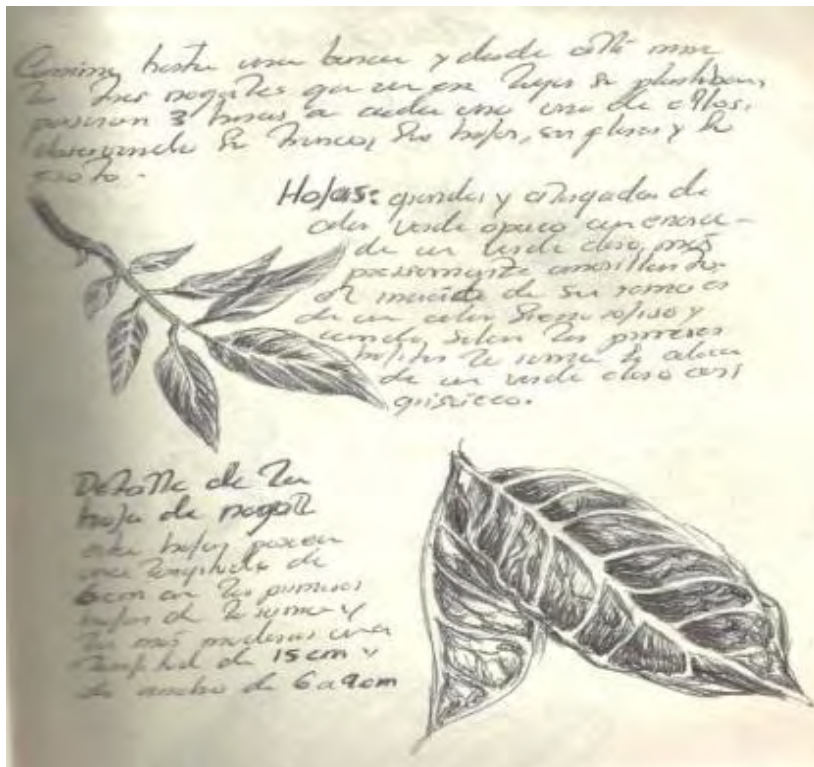 Camine hasta una banca y desde allí mire
los tres nogales que en ese lugar se plantaron,
pasaron 3 horas a cada uno de ellos,
observando su tronco, sus hojas, sus flores y su
fruto.
Hojas: grandes y alargadas de
color verde opaco con
de un verde claro, más
precisamente amarillento.
de su rama es
de un color siena rojizo y
cuando salen las primeras
hojitas la rama se
de un verde claro casi
grisáceo.
Detalle de la
hoja de nogal
estas hojas poseen
una longitud de
6cm en las primeras
hojas de la rama y
las más maduras una
longitud de 15cm y
de ancho de 6 a 9cm